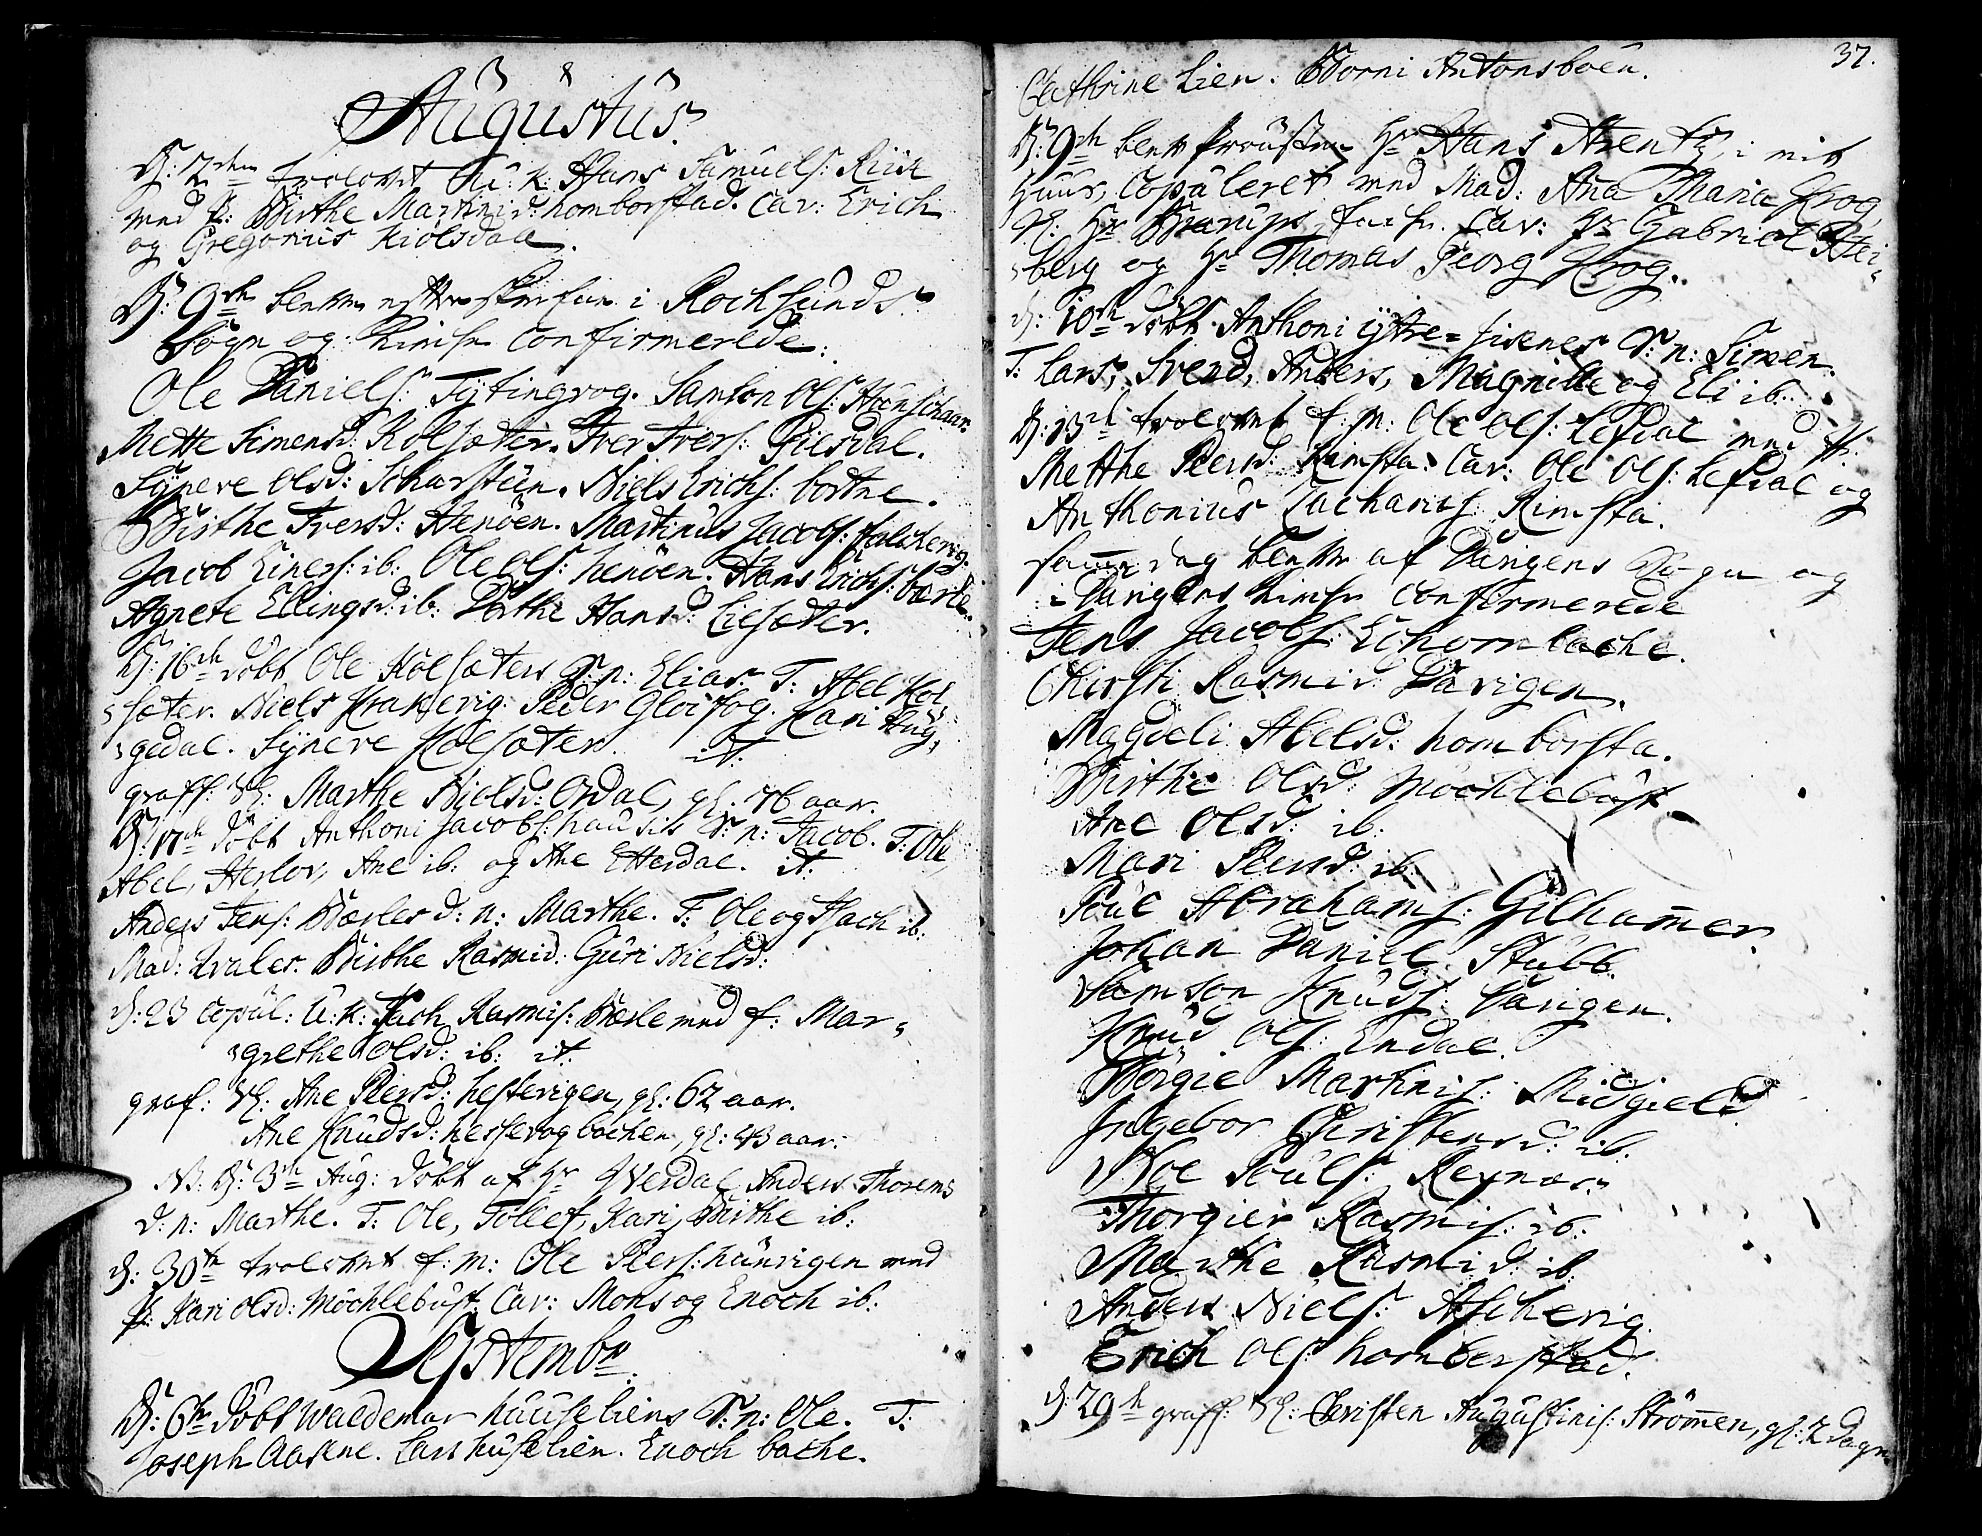 Augustus.
D: 2den trolovet Ü: k: Hans Samuels: Riise
med P: Birthe Martinid: homborstad. Cav: Erich
og Gregorius Kiölsdal.
D: 9de blev efterskrefne i Rochsunds
Sogn og Kirke Confirmerede:
Ole Daniels: Tytingvog. Samson Ols: Hunschaar.
Mette Simensd: Kolsæter. Iver Ivers: Giesdal.
Synneve Olsd: Scharsteen. Niels Erichs: bortne.
Birthe Iversd: Henöen. Martinus Jacobs: falchevig.
Jacob Einers: ib: Ole Ols: henöen. Hans Erichs: bærle.
Agnete Ellingsd: ib: Dorthe Hansd: Liesæter.
D: 16de döbt Ole Kolsæters S: n: Elias. T: Abel Kol-
sæter. Niels Kraknevig. Peder Gloifog. Kari Aug-
gedal. Synneve Kolsæter. it:
graff: Sl: Marthe Nielsd: Ordal, gl: 76 aar.
D: 17de döbt Anthoni Jacobs: hausis S: n: Jacob. T: Ole,
Abel, Herlov, Ane ib: og Ane Etterdal. it:
Anders Jens: Bærles D: n: Marthe. T: Ole og Isach ib:
Mad: Kvaler. Birthe Rasmid: Guri Nielsd:
D: 23 Copul: U: k: Isach Rasmis: Bærle med f: Mar-
grethe Olsd: ib: it:
graf: Sl: Ane Peersd: hestevigen, gl: 62 aar.
Ane Knudsd: hessevogbachen, gl: 43 aar:
NB: D: 3de Aug: döbt af Hr Werdal Anders Thorems
D: n: Marthe. T: Ole, Tollef, Kari, Birthe ib:
D: 30te trolovet f: m: Ole Peers: hünvigen med
P: Kari Olsd: Möchlebust. Cav: Mons og Enoch ib:
Septembr:
D: 6te döbt Waldemar hauseliens S: n: Ole. T:
Joseph Aasene. Lars huselien. Enoch bache.
37.
Cathrine Lien. Borni Antonsböen.
D: 9de blev Prousten Hr Hans Arentz, i mit
Huus, Copuleret med Mad: Ana Maria Krog,
Cav: Hr Gabriel Hei-
berg og Hr Thomas Georg Krog.
D: 10de döbt Anthoni ijtre-hienes S: n: Simen.
T: Lars, Svend, Anders, Magnille og Eli ib:
D: 13de trolovet f: m: Ole Ols: Lefdal med P:
Methe Peersd: Rimsta. Cav: Ole Ols: Lefdal og
Anthonius Zacharis: Rimsta.
samme dag blev af Davigens Sogn og
i Davigens Kirke Confirmerede
Jens Jacobs: Echornbache.
Chirsti Rasmid: Davigen.
Magdeli Abelsd: homborsta.
Birthe Olsd: Möchlebust.
Ane Olsd: ib:
Mari Peersd: ib:
Poul Abrahams: Gilhammer.
Johan Daniel Stubb.
Samson Knuds: Davigen.
Knud Ols: Endal.
Börgie Martinis: Midgield.
Ingebor Christensd: ib:
Noe Pouls: Rexnæs.
Thorgier Rasmis: ib:
Marthe Rasmid: ib:
Anders Niels: Aschevig.
Erich Ols: homberstad.
D: 29de graff: Sl: Christen Augustinis: Strömmen, gl: 2 Dage.